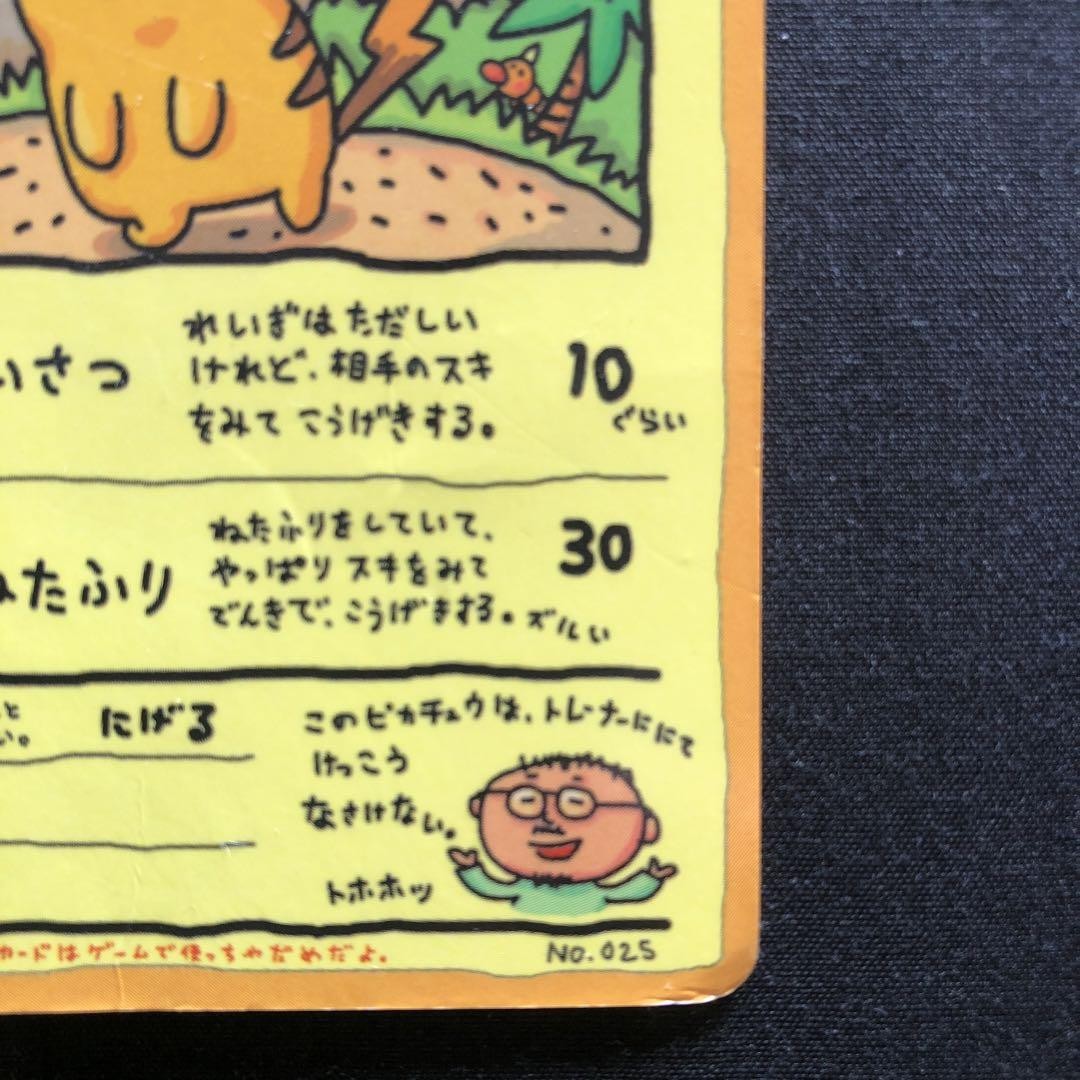 いさつ
れいぎはただしい
けれど、相手のスキ
をみて こうげきする。
10
ぐらい
ねたふり
ねたふりをしていて、
やっぱり スキをみて
でんきで、こうげきする。ズルい
30
と
い。
にげる
このピカチュウは、トレーナーににて
けっこう
なさけない。
トホホッ
カードはゲームで使っちゃだめだよ。
NO. 025